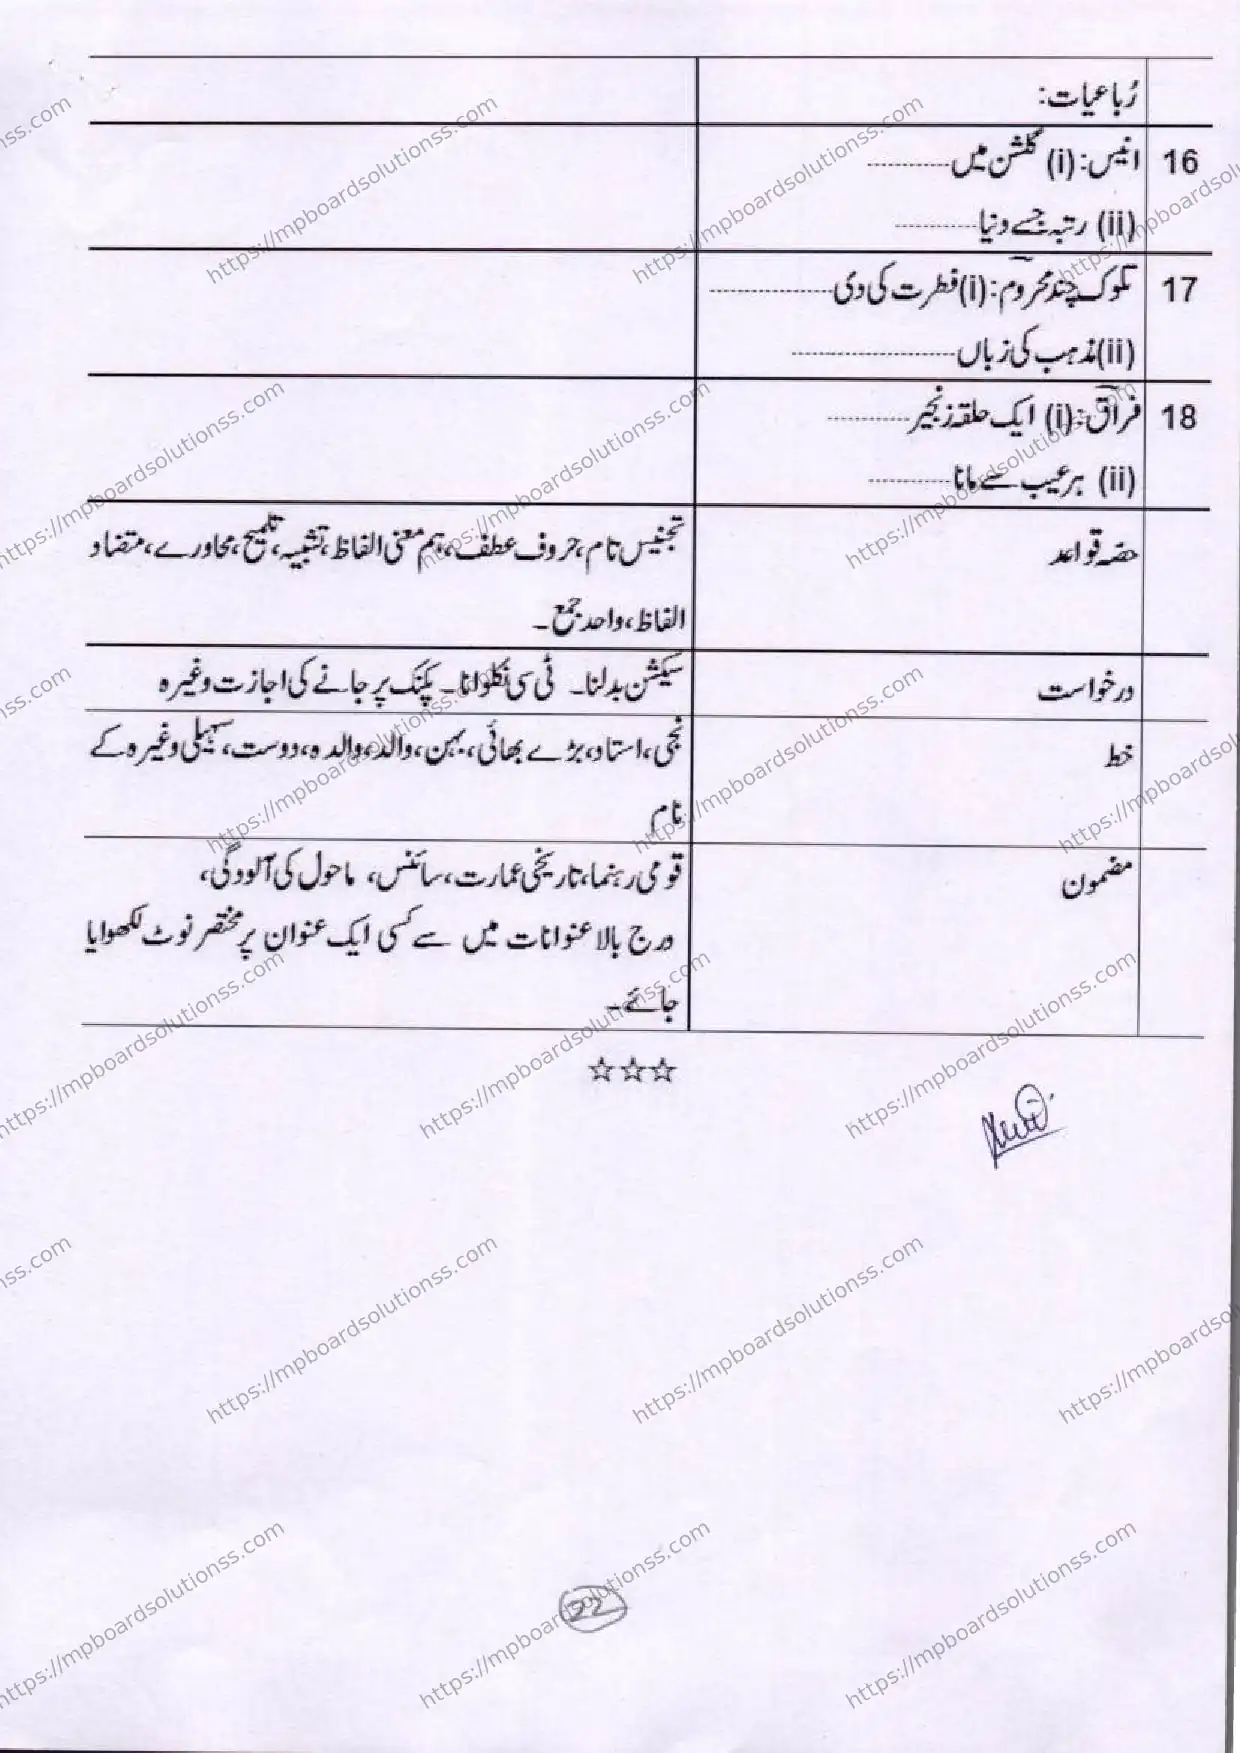 رُباعیات:
16 انیس: (i) گلشن میں............
(ii) رتبہ جسے دنیا............
17 تلوک چند محروم: (i) فطرت کی دی..................
(ii) مذہب کی زباں........................
18 فراق: (i) ایک حلقہ زنجیر............
(ii) ہر عیب سے مانا............
حصّہ قواعد تجنیس تام، حروف عطف، ہم معنی الفاظ، تشبیہ، تلمیح، محاورے، متضاد
الفاظ، واحد جمع۔
درخواست سیکشن بدلنا۔ ٹی سی نکلوانا۔ پکنک پر جانے کی اجازت وغیرہ
خط نجی، استاد، بڑے بھائی، بہن، والد، والدہ، دوست، سہیلی وغیرہ کے
نام
مضمون قومی رہنما، تاریخی عمارت، سائنس، ماحول کی آلودگی،
درج بالا عنوانات میں سے کسی ایک عنوان پر مختصر نوٹ لکھوایا
جائے۔
☆☆☆
22
https://mpboardsolutionss.com